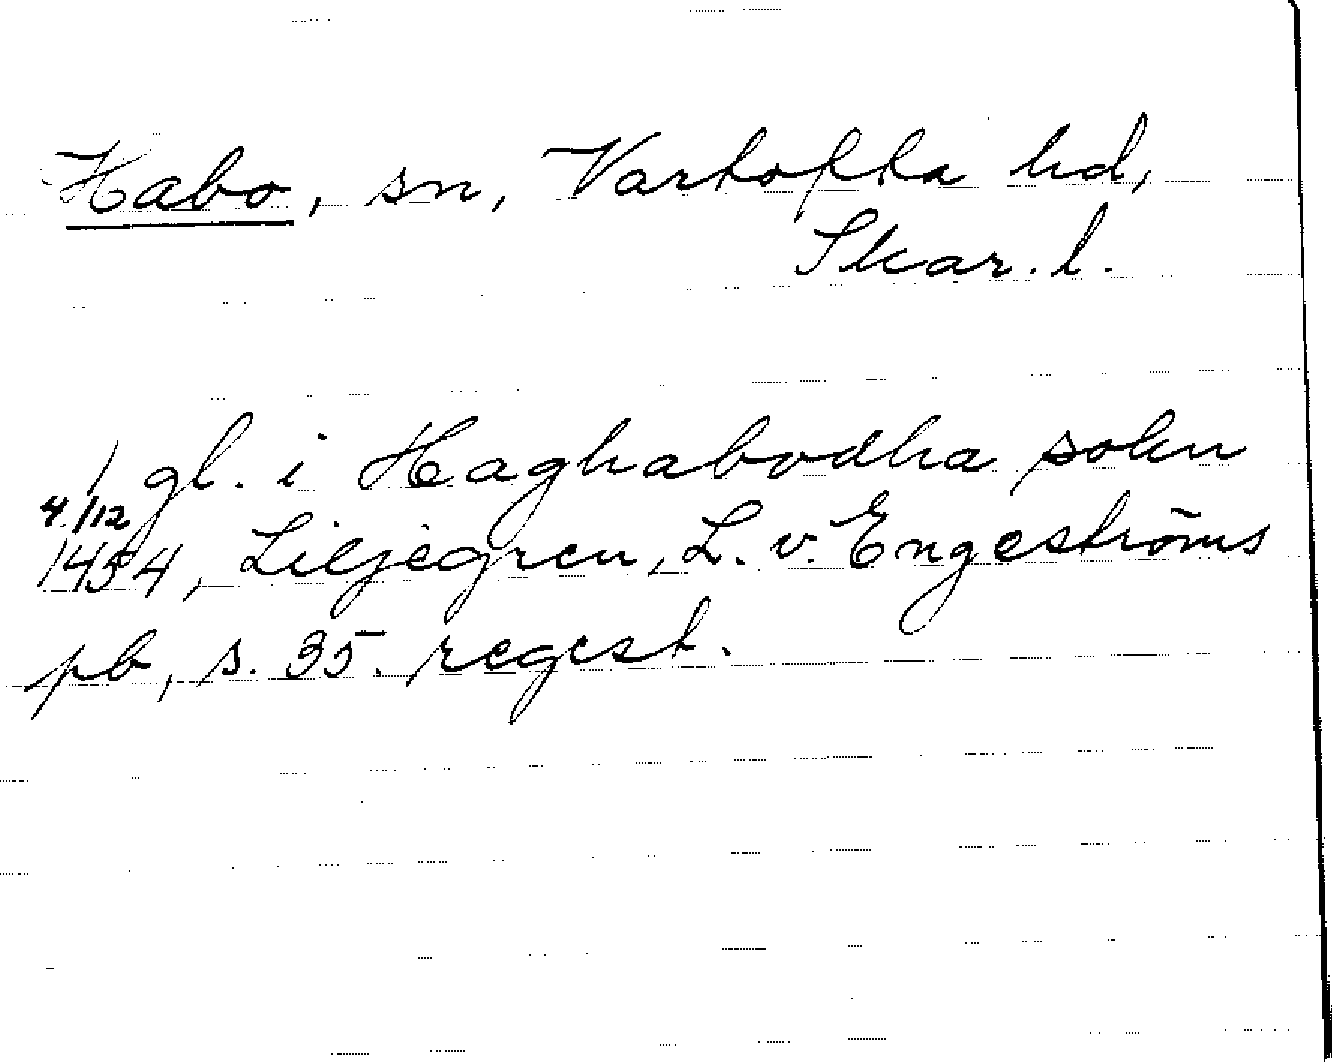 Habo, sn, Vartofta hd,
Skar. l.
/ gl. i Haghabodha sokn
4./12
1454, Liljegren, L. v. Engeströms
pb, s. 35. regest.